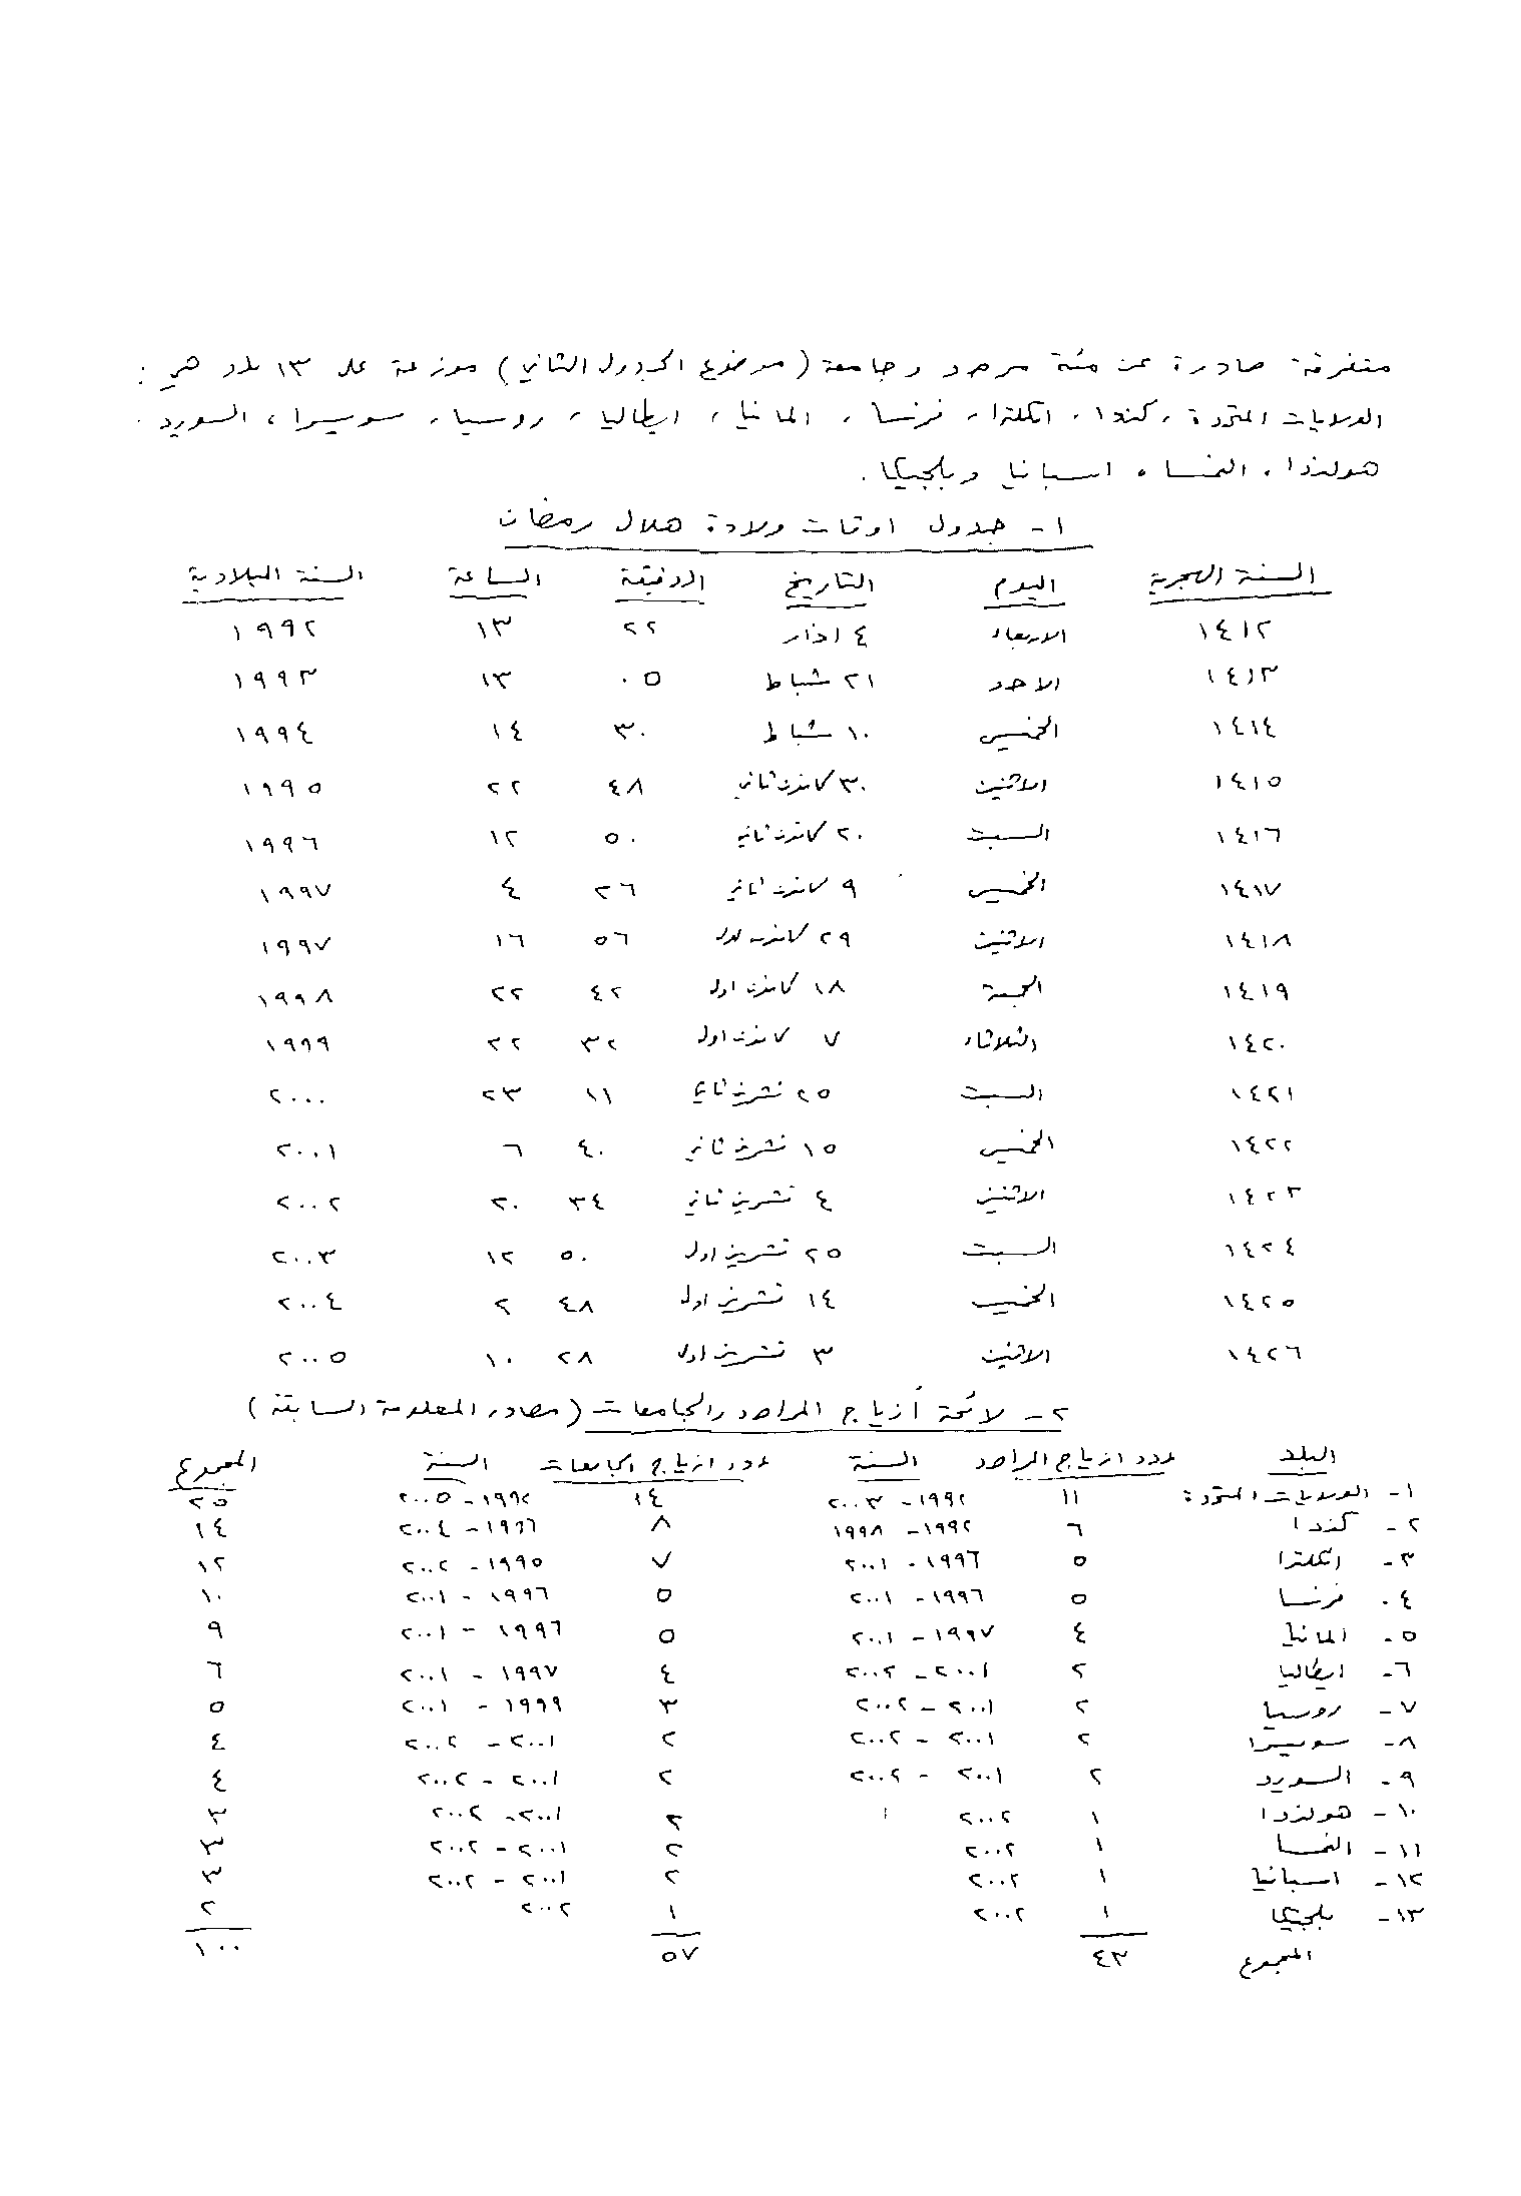 متفرقة صادرة عن مئة مرصد وجامعة (موضوع الجدول الثاني) موزعة على ١٣ بلد هي :
الولايات المتحدة ، كندا ، انكلترا ، فرنسا ، المانيا ، ايطاليا ، روسيا ، سويسرا ، السويد .
هولندا ، النمسا ، اسبانيا وبلجيكا .
١- جدول اوقات ولادة هلال رمضان
السنة الهجرية اليوم التاريخ الدقيقة الساعة السنة الميلادية
١٤١٢ الاربعاء ٤ اذار ٢٢ ١٣ ١٩٩٢
١٤١٣ الاحد ٢١ شباط ٠٥ ١٣ ١٩٩٣
١٤١٤ الخميس ١٠ شباط ٣٠ ١٤ ١٩٩٤
١٤١٥ الاثنين ٣٠ كانون ثاني ٤٨ ٢٢ ١٩٩٥
١٤١٦ السبت ٢٠ كانون ثاني ٥٠ ١٢ ١٩٩٦
١٤١٧ الخميس ٩ كانون ثاني ٢٦ ٤ ١٩٩٧
١٤١٨ الاثنين ٢٩ كانون اول ٥٦ ١٦ ١٩٩٧
١٤١٩ الجمعة ١٨ كانون اول ٤٢ ٢٢ ١٩٩٨
١٤٢٠ الثلاثاء ٧ كانون اول ٣٢ ٢٢ ١٩٩٩
١٤٢١ السبت ٢٥ تشرين ثاني ١١ ٢٣ ٢٠٠٠
١٤٢٢ الخميس ١٥ تشرين ثاني ٤٠ ٦ ٢٠٠١
١٤٢٣ الاثنين ٤ تشرين ثاني ٣٤ ٢٠ ٢٠٠٢
١٤٢٤ السبت ٢٥ تشرين اول ٥٠ ١٢ ٢٠٠٣
١٤٢٥ الخميس ١٤ تشرين اول ٤٨ ٢ ٢٠٠٤
١٤٢٦ الاثنين ٣ تشرين اول ٢٨ ١٠ ٢٠٠٥
٢- لائحة أزياج المراصد والجامعات (مصادر المعلومة السابقة)
البلد عدد ازياج المراصد السنة عدد ازياج الجامعات السنة المجموع
١- الولايات المتحدة ١١ ١٩٩٢-٢٠٠٣ ١٤ ١٩٩٢-٢٠٠٥ ٢٥
٢- كندا ٦ ١٩٩٢-١٩٩٨ ٨ ١٩٩٦-٢٠٠٤ ١٤
٣- انكلترا ٥ ١٩٩٦-٢٠٠١ ٧ ١٩٩٥-٢٠٠٢ ١٢
٤- فرنسا ٥ ١٩٩٦-٢٠٠١ ٥ ١٩٩٦-٢٠٠١ ١٠
٥- المانيا ٤ ١٩٩٧-٢٠٠١ ٥ ١٩٩٦-٢٠٠١ ٩
٦- ايطاليا ٢ ٢٠٠١-٢٠٠٢ ٤ ١٩٩٧-٢٠٠١ ٦
٧- روسيا ٢ ٢٠٠١-٢٠٠٢ ٣ ١٩٩٩-٢٠٠١ ٥
٨- سويسرا ٢ ٢٠٠١-٢٠٠٢ ٢ ٢٠٠١-٢٠٠٢ ٤
٩- السويد ٢ ٢٠٠١-٢٠٠٢ ٢ ٢٠٠١-٢٠٠٢ ٤
١٠- هولندا ١ ٢٠٠٢ ٢ ٢٠٠١-٢٠٠٢ ٣
١١- النمسا ١ ٢٠٠٢ ٢ ٢٠٠١-٢٠٠٢ ٣
١٢- اسبانيا ١ ٢٠٠٢ ٢ ٢٠٠١-٢٠٠٢ ٣
١٣- بلجيكا ١ ٢٠٠٢ ١ ٢٠٠٢ ٢
المجموع ٤٣ ٥٧ ١٠٠